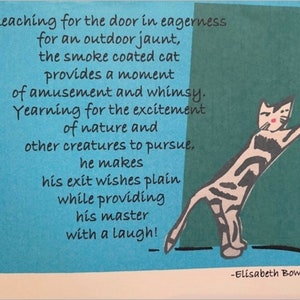 Reaching for the door in eagerness
for an outdoor jaunt,
the smoke coated cat
provides a moment
of amusement and whimsy.
Yearning for the excitement
of nature and
other creatures to pursue,
he makes
his exit wishes plain
while providing
his master
with a laugh!
-Elisabeth Bow